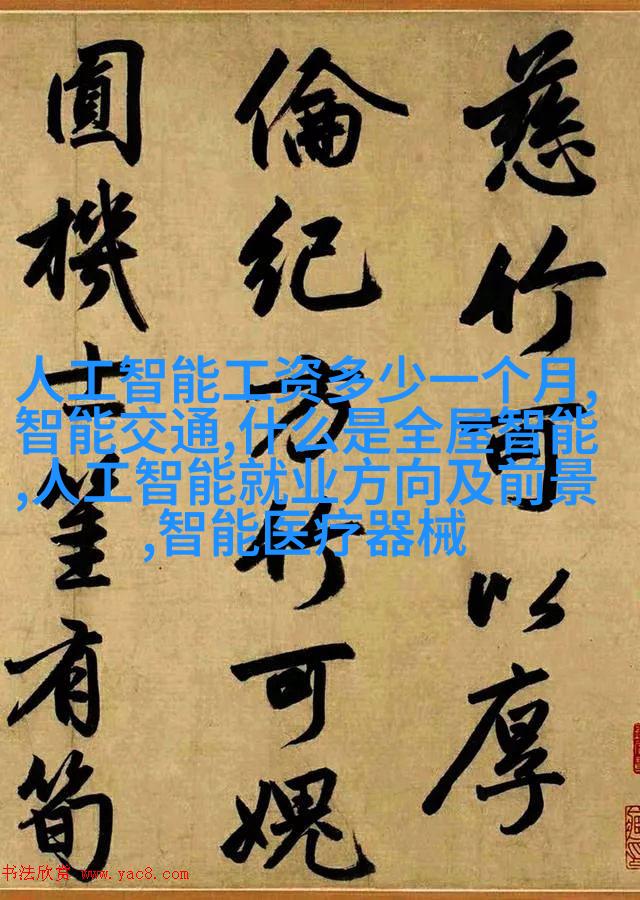 慈竹可以厚
倫紀方竹可媿
圓機士筀有筍
人工智能工资多少一个月,
智能交通,什么是全屋智能
,人工智能就业方向及前景
,智能医疗器械
书法欣赏 www.yac8.com